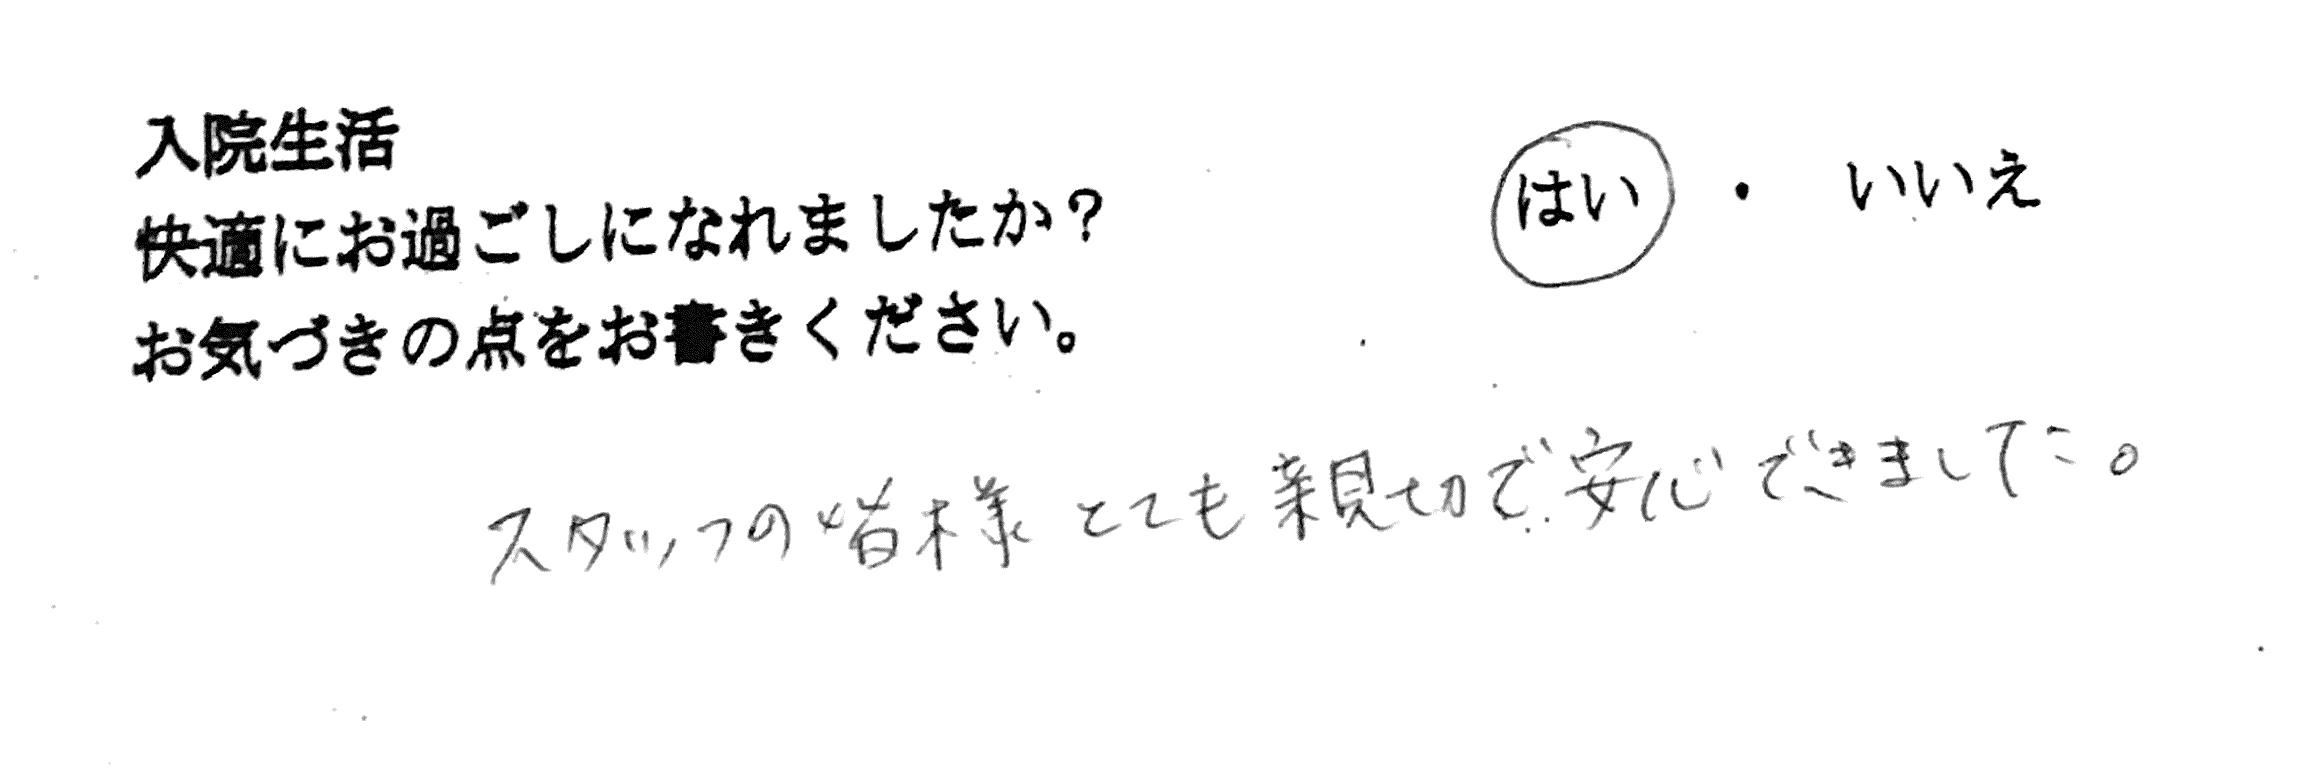 入院生活
快適にお過ごしになれましたか？ はい ・ いいえ
お気づきの点をお書きください。
スタッフの皆様 とても親切で安心できました。